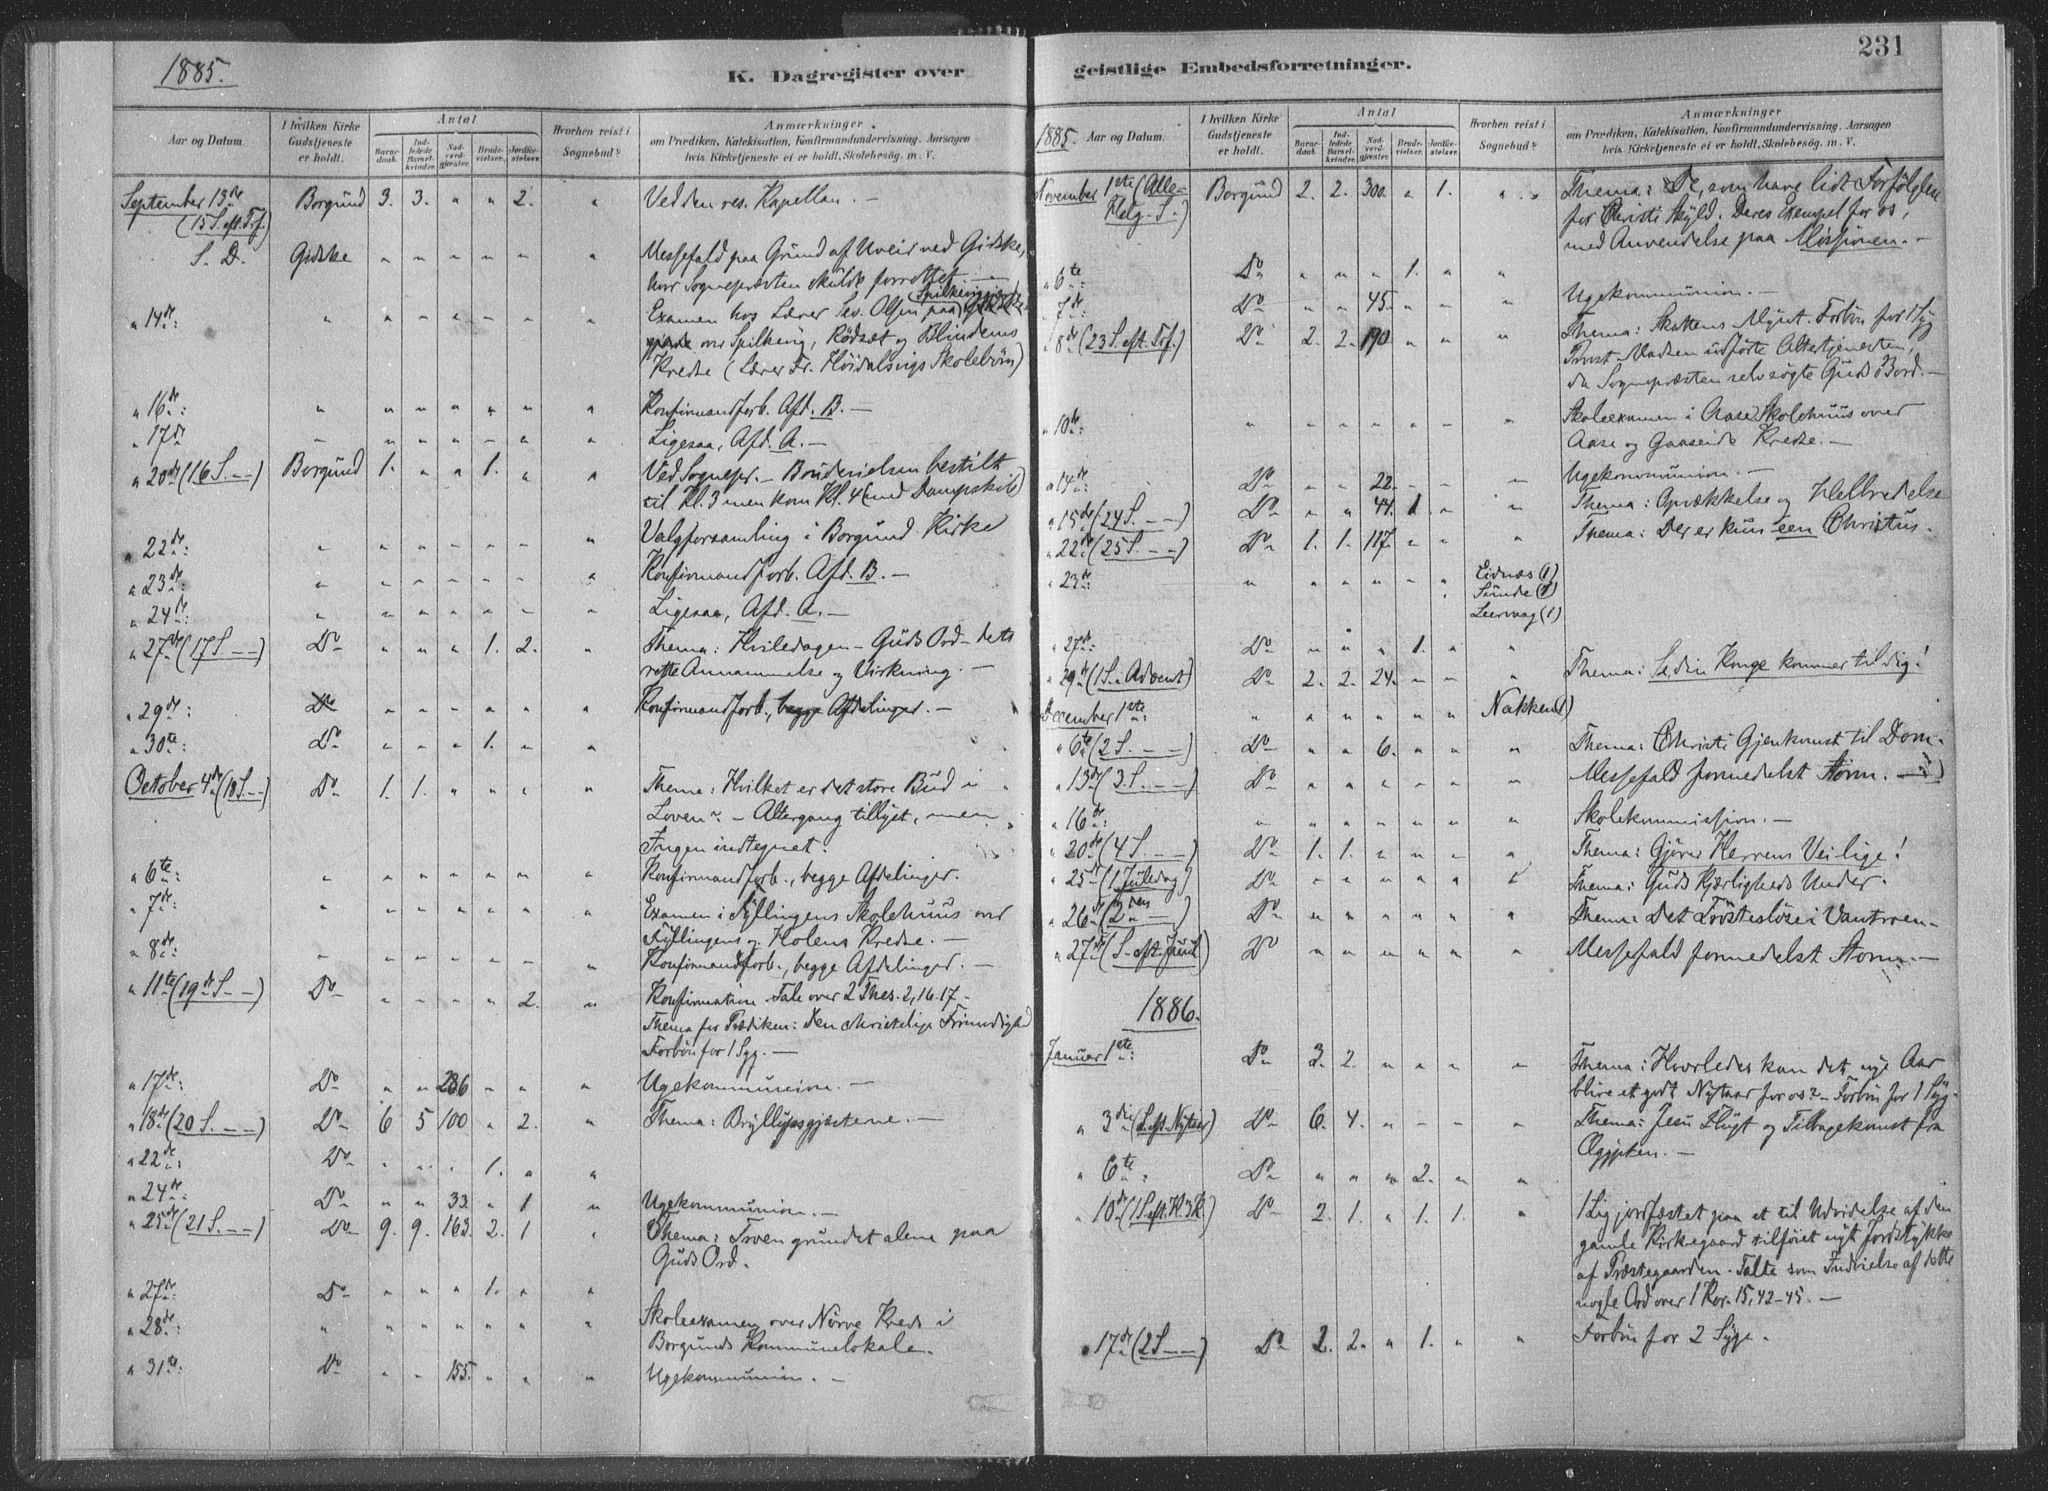 1885.
K. Dagregister over
Aar og Datum.
I hvilken Kirke Gudstjeneste er holdt.
Antal
Barnedaab.
Indledede Barselkvinder.
Nadverdgjæster.
Brudevielser.
Jordfæstelser.
Hvorhen reist i Sognebud?
Anmærkninger
om Prædiken, Katekisation, Konfirmandundervisning. Aarsagen
hvis Kirketjeneste ei er holdt, Skolebesøg. m. V.
September 13de Borgund 3. 3. " " 2. " Ved den res. Kapellan. —
(15 S. eft. Trf.)
S. D. Gidske " " " " " " Messefald paa Grund af Uveir ved Gidske,
hvor Sognepræsten skulde forrettet —
" 14de: " " " " " " " Examen hos Lærer Sev. Olsen paa Spilkevig
over Spilkevig, Rødsæt og Blindems
Kredse (Lærer Fr. Høidalsvigs Skolebørn)
" 16de: " " " " " " " Konfirmandforb. Afd. B. —
" 17de " " " " " " " Ligesaa, Afd. A. —
" 20de (16 S. — —) Borgund 1. " " 1. " " Ved Sognepr. — Brudevielsen bestilt
til Kl. 3 men kom Kl. 4 (med Dampskib)
" 22de: " " " " " " " Valgforsamling i Borgund Kirke
" 23de: " " " " " " " Konfirmandforb. Afd. B. —
" 24de: " " " " " " " Ligesaa, Afd. A. —
" 27de (17 S. — —) Do " " " 1. 2. " Thema: Hviledagen — Guds Ord — dets
rette Annammelse og Virkning. —
" 29de: Do " " " " " " Konfirmandforb., begge Afdelinger. —
" 30te: Do " " " 1. " "
October 4de (18 S. —) Do 1. 1. " " " " Thema: Hvilket er det store Bud i
Loven? — Altergang tillyst, men
Ingen indtegnet.
" 6te: " " " " " " " Konfirmandforb., begge Afdelinger.
" 7de: " " " " " " " Examen i Fyllingens Skolehuus over
Fyllingens og Holens Kredse. —
" 8de: " " " " " " " Konfirmandforb., begge Afdelinger. —
" 11te (19de S. —) Do " " " " 2. " Konfirmation — Tale over 2 Thes. 2, 16. 17. —
Thema for Prædiken: Den christelige Frimodighed
Forbøn for 1 Syg. —
" 17de: Do " " 286 " " " Ugekommunion. —
" 18de (20 S. — —) Do 6 5 100 " 2. " Thema: Bryllupsgjæsterne. —
" 22de: Do " " " 1. " "
" 24de: Do " " 33. " 1 " Ugekommunion. —
" 25de (21 S. — —) Do 9. 9. 163. 2. 1 " Thema: Troen grundet alene paa
Guds Ord.
" 27de: Do " " " 1. " "
" 28de: " " " " " " " Skoleexamen over Nørve Kreds i
Borgunds Kommunelokale.
" 31te: Do " " 155. " " " Ugekommunion. —
231
geistlige Embedsforretninger.
1885. Aar og Datum.
I hvilken Kirke Gudstjeneste er holdt.
Antal
Barnedaab.
Indledede Barselkvinder.
Nadverdgjæster.
Brudevielser.
Jordfæstelser.
Hvorhen reist i Sognebud?
Anmærkninger
om Prædiken, Katekisation, Konfirmandundervisning. Aarsagen
hvis Kirketjeneste ei er holdt, Skolebesøg. m. V.
November 1ste (Alle- Borgund 2. 2. 300. " 1. " Thema: De, som have lidt Forfølgelse
Helg. S.) for Christi Skyld. Deres Exempel for os,
med Anvendelse paa Missionen. —
" 6te: Do " " " 1. " "
" 7de: Do " " 45. " " " Ugekommunion. —
" 8de (23 S. eft. Trf.) Do 2. 2. 190. " " " Thema: Skattens Mynt. Forbøn for 1 Syg
Provst Madsen udførte Altertjenesten,
da Sognepræsten selv søgte Guds Bord. —
" 10de: " " " " " " " Skoleexamen i Aase Skolehuus over
Aase og Gaaseids Kredse. —
" 14de: Do " " 22. " " " Ugekommunion. —
" 15de (24 S. — —) Do " " 44. 1. " " Thema: Opvækkelse og Helbredelse
" 22de (25 S. — —) Do 1. 1. 117. " " " Thema: Der er kun een Christus.
" 23de: " " " " " " Eidnæs (1)
Sunde (1)
Leervaag (1)
" 27de: Do " " " 1. " "
" 29de (1 S. i Advent) Do 2. 2. 24. " " " Thema: Se, din Konge kommer til dig!
December 1ste: " " " " " " Nakken (1)
" 6te (2 S. — —) Do " " 6. " " " Thema: Christi Gjenkomst til Dom.
" 13de (3. S. — —) Do " " " " " " Messefald formedelst Storm. —
" 16de: " " " " " " " Skolekommission. —
" 20de (4 S. — —) Do 1. 1. " " " " Thema: Gjører Herrens Vei lige!
" 25de (1. Juledag) Do " " " " " " Thema: Guds Kjærligheds Under.
" 26de (2den —) Do " " " " " " Thema: Det Trøsteløse i Vantroen —
" 27de (S. eft. Juul) Do " " " " " " Messefald formedelst Storm. —
1886.
Januar 1ste: Do 3. 2. " " " " Thema: Hvorledes kan det nye Aar
blive et godt Nytaar for os? — Forbøn for 1 Syg.
" 3die (S. eft. Nytaar) Do 6. 4. " " " " Thema: Jesu Flugt og Tilbagekomst fra
Ægypten. —
" 6te: Do " " " 2. " "
" 10de (1 S. eft. H3K) Do 2. 1. " 1. 1. " 1 Lig jordfæstet paa et til Udvidelse af den
gamle Kirkegaard tilføiet nyt Jordstykke
af Præstegaarden. Talte som Indvielse af dette
nogle Ord over 1 Kor. 15, 42–45. —
" 17de (2 S. — —) Do 2. 2. " 1. " " Forbøn for 2 Syge.